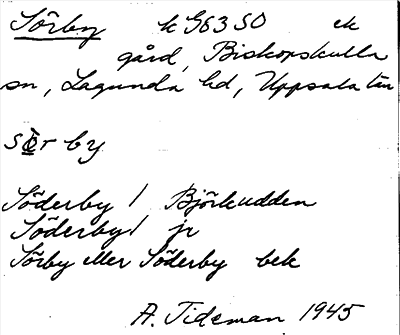 Sörby k G63 SO ek
gård, Biskopskulla
sn, Lagunda hd, Uppsala län
sör by
Söderby / Björkudden
Söderby / jr
Sörby eller Söderby bek
A. Tideman 1945